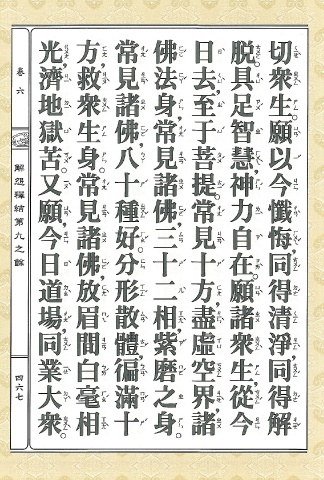 切眾生。願以今懺悔,同得清淨,同得解
脫,具足智慧,神力自在。願諸眾生,從今
日去,至于菩提,常見十方盡虛空界諸
佛法身,常見諸佛三十二相紫磨之身。
常見諸佛八十種好,分形散體,徧滿十
方,救眾生身。常見諸佛,放眉間白毫相
光,濟地獄苦。又願今日道場同業大眾。
卷六
解怨釋結第九之餘
四六七